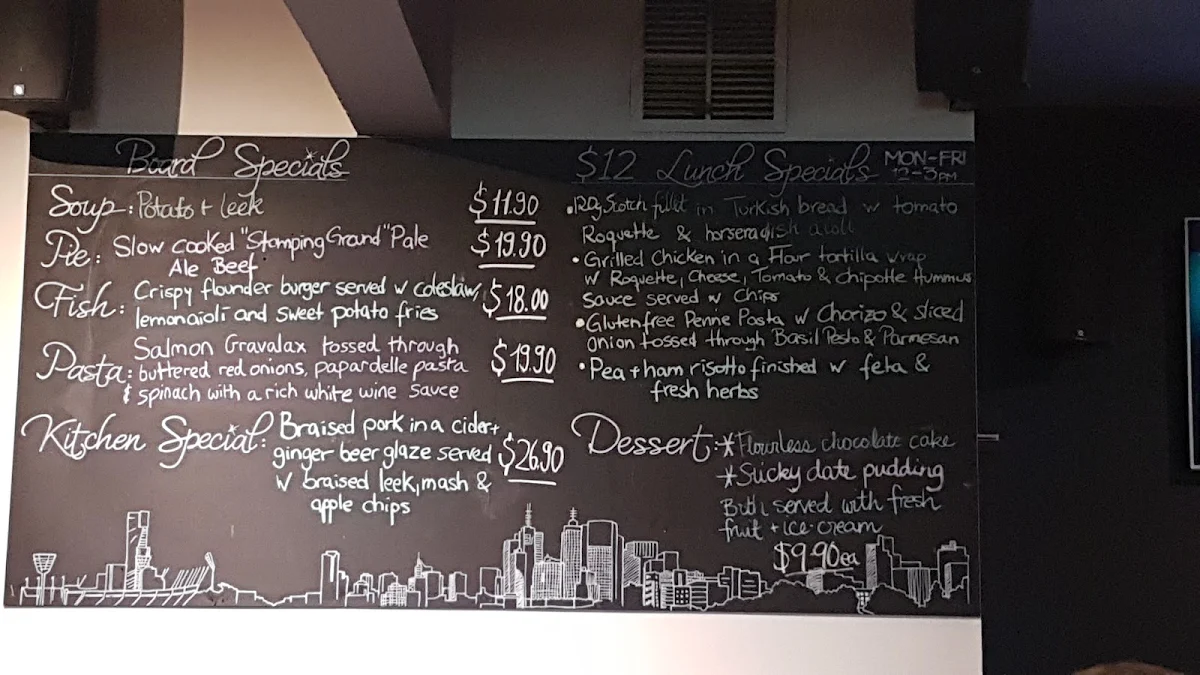 Board Specials
Soup: Potato + leek $11.90
Pie: Slow cooked "Stamping Ground" Pale $19.90
Ale Beef
Fish: Crispy flounder burger served w coleslaw, $18.00
lemonaioli and sweet potato fries
Salmon Gravalax tossed through
Pasta: buttered red onions, papardelle pasta $19.90
& spinach with a rich white wine sauce
Kitchen Special: Braised pork in a cider +
ginger beer glaze served $26.90
w braised leek, mash &
apple chips
$12 Lunch Specials MON-FRI
12-3PM
• 120g Scotch fillet in Turkish bread w tomato
Roquette & horseradish aioli
• Grilled Chicken in a Flour tortilla wrap
w Roquette, Cheese, Tomato & chipotle Hummus
Sauce served w Chips
• Gluten free Penne Pasta w Chorizo & sliced
onion tossed through Basil Pesto & Parmesan
• Pea + ham risotto finished w feta &
fresh herbs
Dessert: * Flourless chocolate cake
* Sticky date pudding
Both served with fresh
fruit + ice-cream
$9.90ea